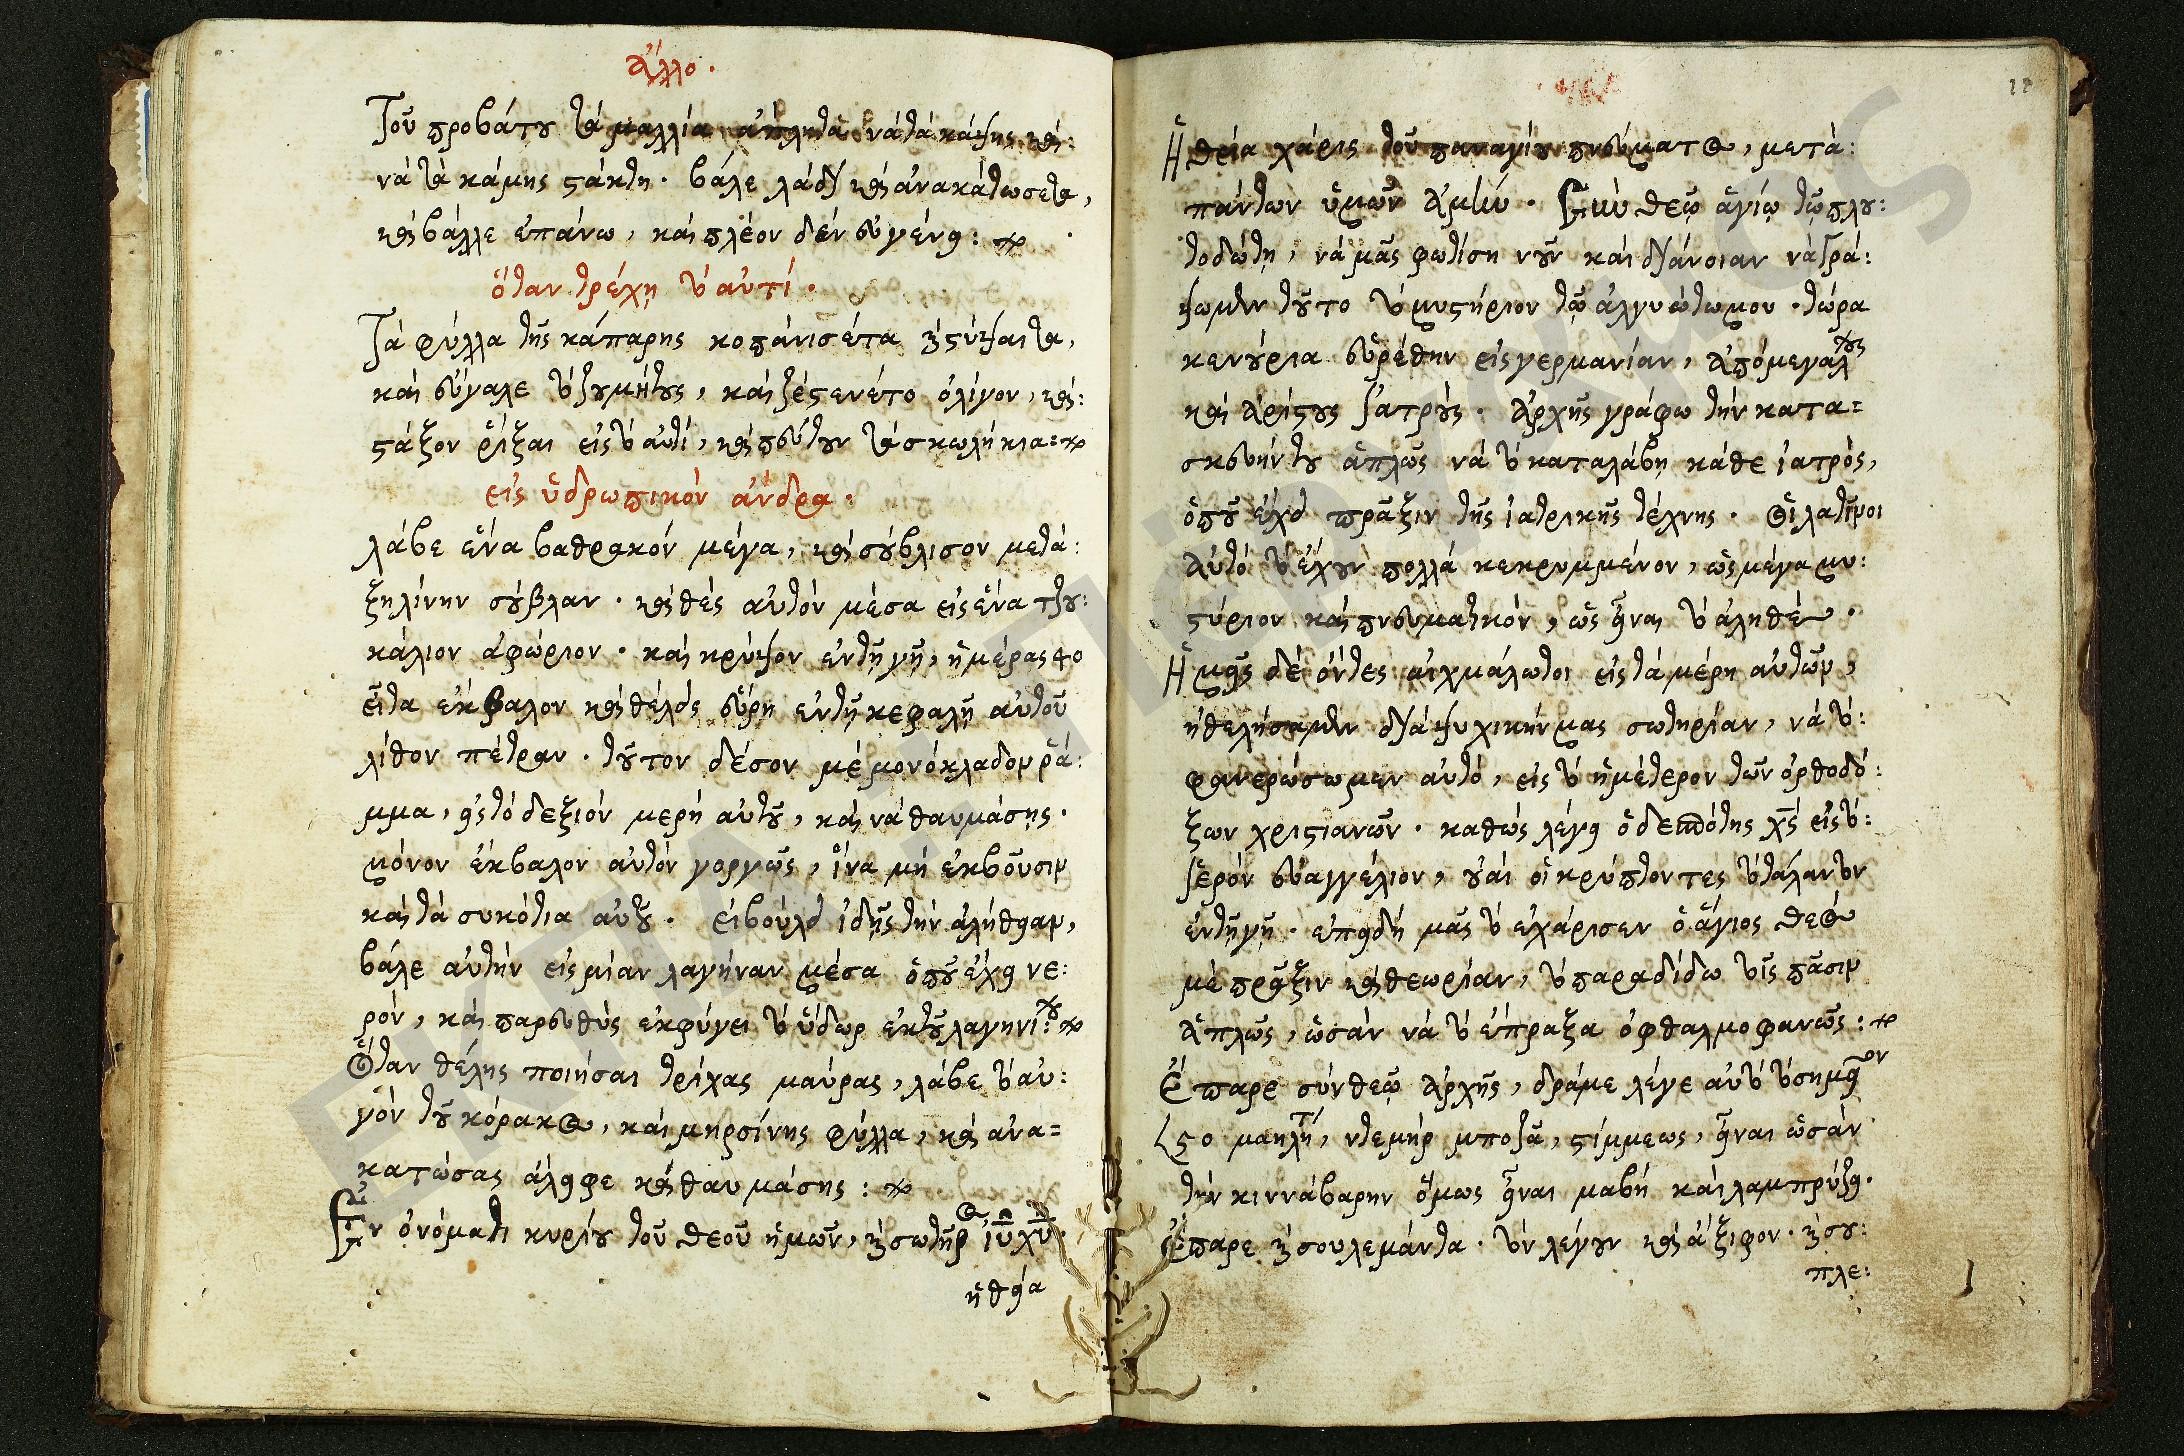 Ἄλλο.
Τοῦ προβάτου τὰ μαλλία ἄπλητα νὰ τὰ κάψης, καὶ:
νὰ τὰ κάμης στάκτη. βάλε λάδι καὶ ἀνακάτωσετα,
καὶ βάλλε ἐπάνω, καὶ πλέον δὲν εὐγένει:
ὅταν τρέχη τὸ αὐτί.
Τὰ φύλλα τῆς κάπαρης κοπάνισέτα καὶ στύψαι τα,
καὶ εὔγαλε τὸ ζουμήτους, καὶ ζέστενέτο ὀλίγον, καὶ:
στάξον ῥίξαι εἰς τὸ αὐτί, καὶ πεύτουν τὰ σκωλήκια:
εἰς ὑδρωπικὸν ἄνδρα.
λάβε ἕνα βαθρακὸν μέγα, καὶ σούβλισον μετὰ:
ξηλίνην σούβλαν. καὶ θὲς αὐτὸν μέσα εἰς ἕνα τζου:
κάλιον ἀφώριον. καὶ κρύψον ἐν τῇ γῇ, ἡμέρας 40
εἶτα ἔκβαλον καὶ θέλεις εὕρη ἐν τῇ κεφαλῇ αὐτοῦ
λίθον πέτραν. τοῦτον δέσον μὲ μονόκλαδον ρά:
μμα, εἰς τὸ δεξιὸν μερὴ αὐτοῦ, καὶ νὰ θαυμάσῃς.
μόνον ἔκβαλον αὐτὸν γοργῶς, ἵνα μὴ ἐκβοῦσιν
καὶ τὰ συκότια αὐτοῦ. εἰ βούλει ἰδῇς τὴν ἀλήθειαν,
βάλε αὐτὴν εἰς μίαν λαγήναν μέσα ὁποῦ ἔχει νε:
ρόν, καὶ παρευθὺς ἐκφύγει τὸ ὕδωρ ἐκ τοῦ λαγηνίου:
Ὅταν θέλης ποιήσαι τρίχας μαύρας, λάβε τὸ αὐ:
γὸν τοῦ κόρακος, καὶ μηρσίνης φύλλα, καὶ ἀνα=
κατώσας ἄλειφε καὶ θαυμάσης:
Ἐν ὀνόματι κυρίου τοῦ θεοῦ ἡμῶν, καὶ σωτῆρος ἰῦ χῦ.
ἡ θεία
Ἡ θεία χάρις τοῦ παναγίου πνεύματος, μετὰ:
πάντων ὑμῶν Ἀμήν. Σὺν θεῷ ἁγίῳ τῷ πλου:
τοδώτῃ, νὰ μᾶς φωτίση νοῦν καὶ διάνοιαν νὰ γρά:
ψωμεν τοῦτο τὸ μυστήριον τῷ ἀλγυώτωμον. τώρα
κενούρια εὑρέθην εἰς γερμανίαν, Ἀπὸ μεγάλους
καὶ Ἀρίστους ἰατρούς. Ἀρχῆς γράφω τὴν κατα=
σκευήν του ἁπλῶς νὰ τὸ καταλάβη κάθε ἰατρὸς,
ὁποῦ ἔχει πρᾶξιν τῆς ἰατρικῆς τέχνης. Οἱ λατῖνοι
Αὐτὸ τὸ ἔχουν πολλὰ κεκρυμμένον, ὡς μέγα μυ:
στύριον καὶ πνευματικόν, ὡς εἶναι τὸ ἀληθές.
Ἡμεῖς δὲ ὄντες αἰχμάλωτοι εἰς τὰ μέρη αὐτῶν,
ἠθελήσαμεν διὰ ψυχικήν μας σωτηρίαν, νὰ τὸ:
φανερώσωμεν αὐτό, εἰς τὸ ἡμέτερον τῶν ὀρθοδό:
ξων χριστιανῶν. καθὼς λέγει ὁ δεσπότης χς εἰς τὸ:
ἱερὸν εὐαγγέλιον, οὐαὶ οἱ κρύπτοντες τὸ τάλαντον
ἐν τῇ γῇ. ἐπειδὴ μᾶς τὸ ἐχάρισεν ὁ ἅγιος θεὸς
μὲ πρᾶξιν καὶ θεωρίαν, τὸ παραδίδω τοῖς πᾶσιν
ἁπλῶς, ὡσὰν νὰ τὸ ἔπραξα ὀφθαλμοφανῶς:
Ἔπαρε σὺν θεῷ Ἀρχῆς, δράμε λέγε αὐτὸ τὸ σημεῖον
μποζᾶ, στίμμεως, εἶναι ὡσὰν
τὴν κιννάβαρην ὅμως εἶναι μαβὴ καὶ λαμπρύζει.
Ἔπαρε καὶ σουλεμάντα. τὸν λέγουν καὶ ἄξιφον. καὶ σου:
πλε: